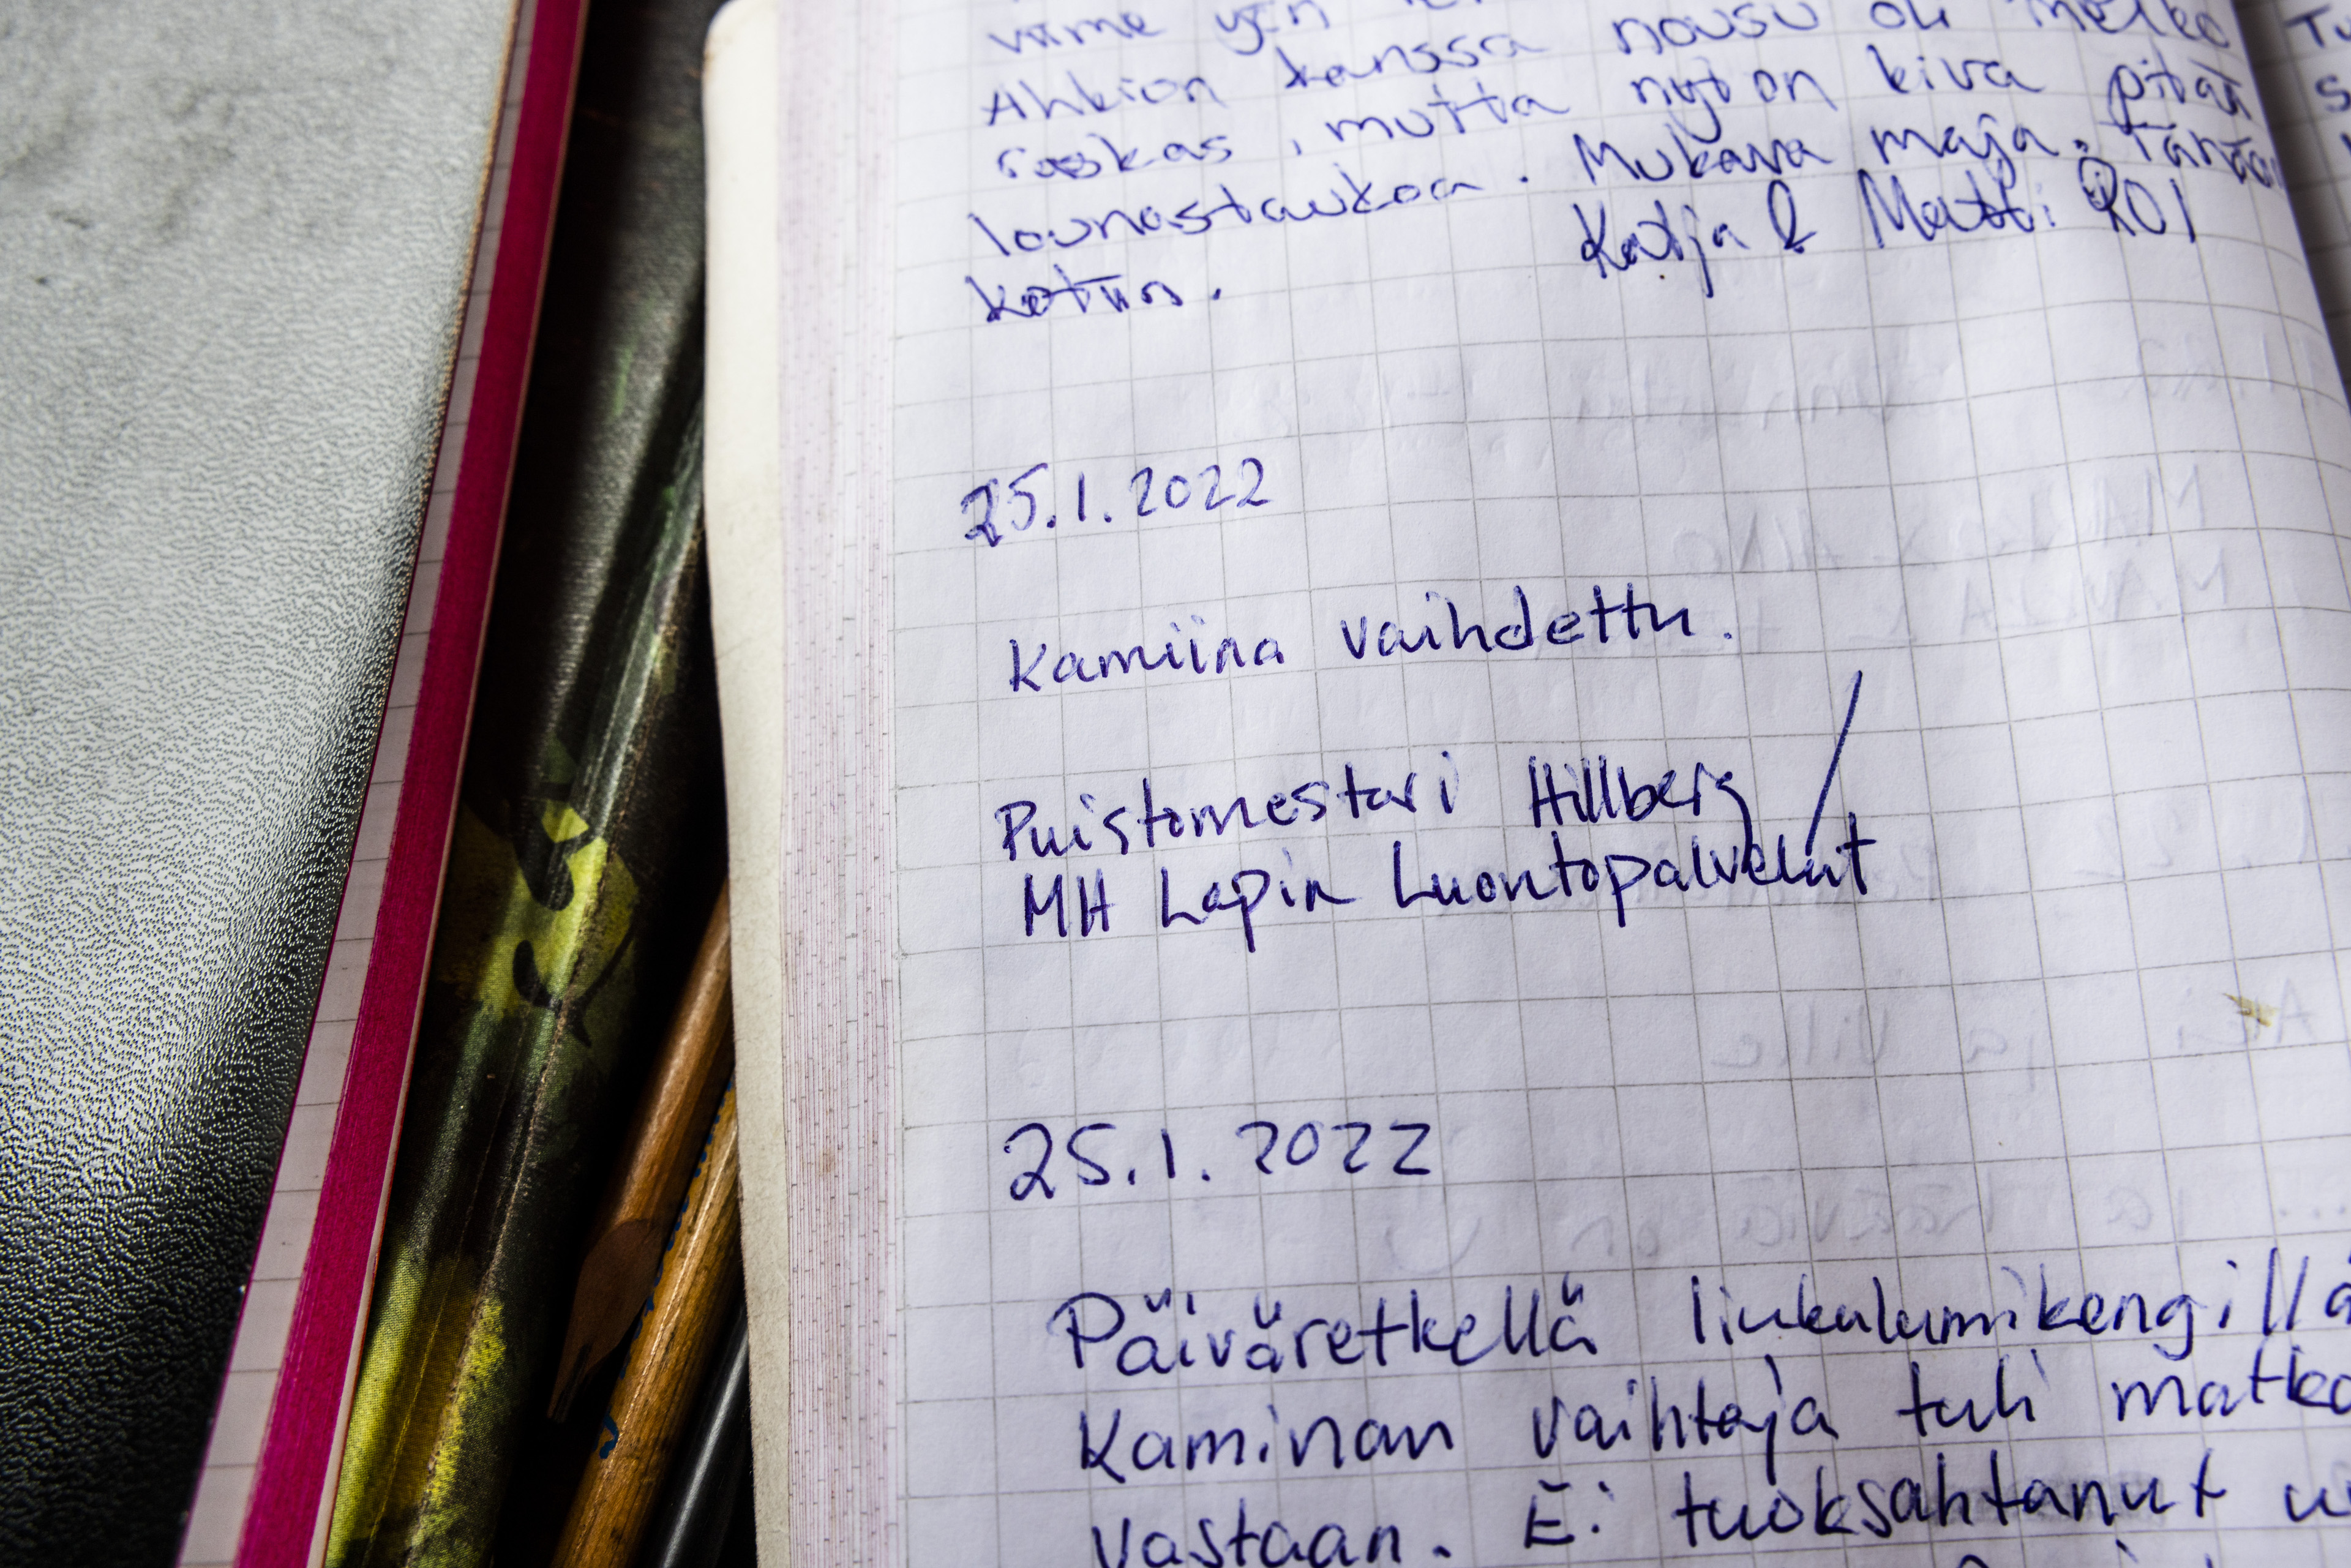 viime yön
Ahkion kanssa nousu oli melko
raskas, mutta nyt on kiva pitää
lounastaukoa. Mukava maja. Tänään
kotiin. Katja & Matti ROI
25.1.2022
Kamiina vaihdettu.
Puistomestari Hillberg
MH Lapin Luontopalvelut
25.1.2022
Päiväretkellä liukulumikengillä
Kaminan vaihtaja tuli matka
vastaan. Ei tuoksahtanut